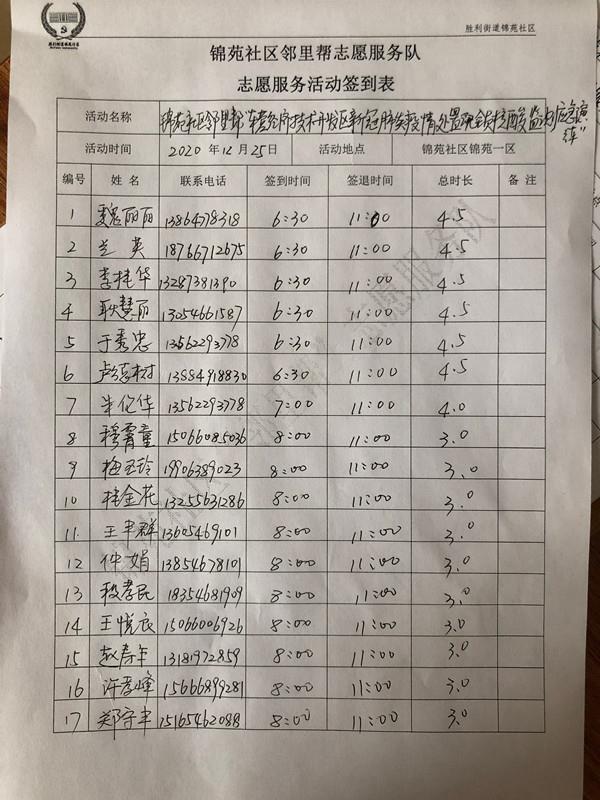 胜利街道锦苑社区
锦苑社区邻里帮志愿服务队
志愿服务活动签到表
活动名称 锦苑社区邻里帮"东营经济技术开发区新冠肺炎疫情处置现全员核酸监测应急演练"
活动时间 2020 年 12 月 25 日 活动地点 锦苑社区锦苑一区
编号 姓 名 联系电话 签到时间 签退时间 总时长 备 注
1 魏丽丽 13864778318 6:30 11:00 4.5
2 兰英 18766712675 6:30 11:00 4.5
3 李桂华 13287381390 6:30 11:00 4.5
4 耿慧丽 13054661587 6:30 11:00 4.5
5 于秀忠 13562293778 6:30 11:00 4.5
6 13884918830 6:30 11:00 4.5
7 朱伦华 13562293778 7:00 11:00 4.0
8 穆霄童 15066085036 8:00 11:00 3.0
9 梅玉玲 19906389023 8:00 11:00 3.0
10 韩金花 13255631286 8:00 11:00 3.0
11. 王丰群 13605469101 8:00 11:00 3.0
12 仲娟 13854678101 8:00 11:00 3.0
13 程孝民 18354681909 8:00 11:00 3.0
14 王悦辰 15066006926 8:00 11:00 3.0
15 赵寿年 13181972859 8:00 11:00 3.0
16 许孝峰 15666899281 8:00 11:00 3.0
17 郑守丰 15165462088 8:00 11:00 3.0